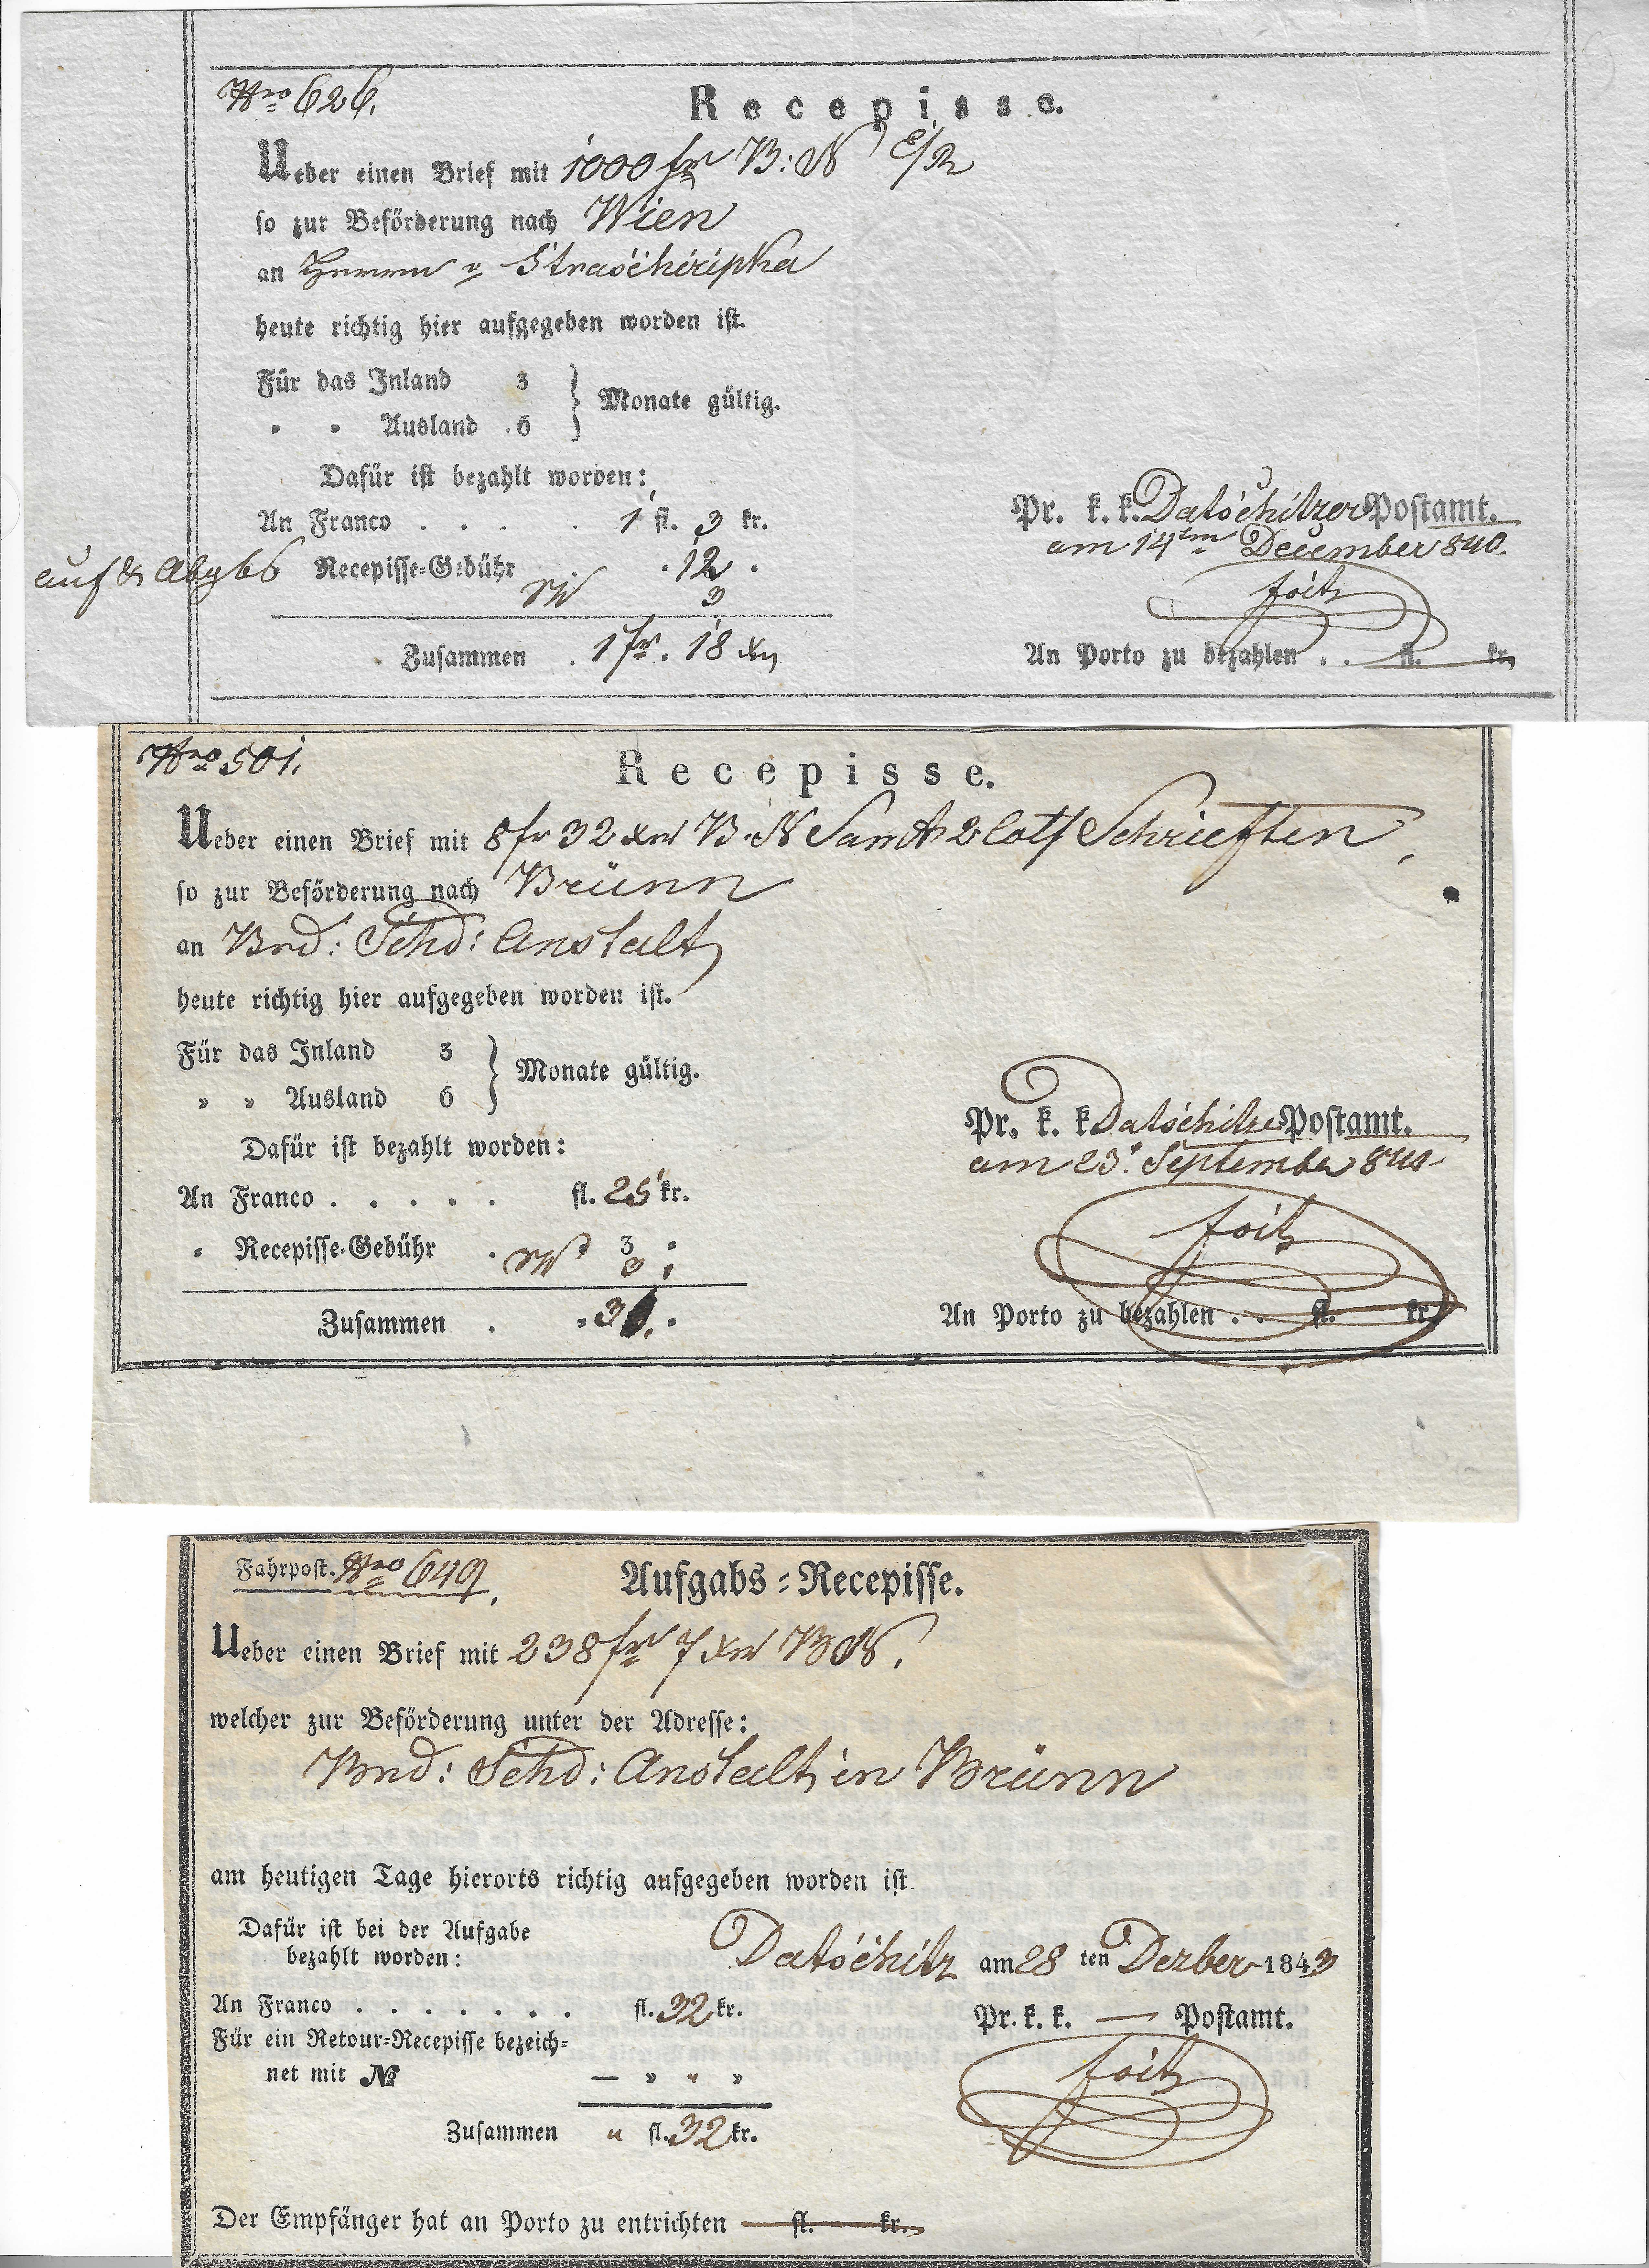 Nro 626.
Recepisse.
Ueber einen Brief mit 1000 fr B: N
so zur Beförderung nach Wien
an Herrn v Straschiripka
heute richtig hier aufgegeben worden ist.
Für das Inland 3 } Monate gültig.
" " Ausland 6
Dafür ist bezahlt worden:
An Franco . . . . 1 fl. 3 kr.
auf & Abgbs Recepisse-Gebühr . . 12 .
3
Zusammen . 1 fr. 18 xr
Pr. k. k. Datschitzer Postamt.
am 14ten December 840.
Foitz
An Porto zu bezahlen . . fl. kr.
Nro 501.
Recepisse.
Ueber einen Brief mit 8 fr 32 xr B. N Samt 2 loth Schrieften,
so zur Beförderung nach Brünn
an Brd: Schd: Anstalt
heute richtig hier aufgegeben worden ist.
Für das Inland 3 } Monate gültig.
" " Ausland 6
Dafür ist bezahlt worden:
An Franco . . . . . fl. 25 kr.
" Recepisse-Gebühr . 3 "
3 "
Zusammen . . 31. .
Pr. k. k. Datschitzer Postamt.
am 23t September
Foitz
An Porto zu bezahlen . . fl. kr.
Fahrpost. Nro 649.
Aufgabs-Recepisse.
Ueber einen Brief mit 238 fr 7 xr BN.
welcher zur Beförderung unter der Adresse:
Brd: Schd: Anstalt in Brünn
am heutigen Tage hierorts richtig aufgegeben worden ist.
Dafür ist bei der Aufgabe
bezahlt worden:
Datschitz am 28 ten Dezber 1843
An Franco . . . . . . . fl. 32 kr.
Pr. k. k. — Postamt.
Für ein Retour-Recepisse bezeich-
net mit № — " " "
Foitz
Zusammen " fl. 32 kr.
Der Empfänger hat an Porto zu entrichten — fl. — kr.